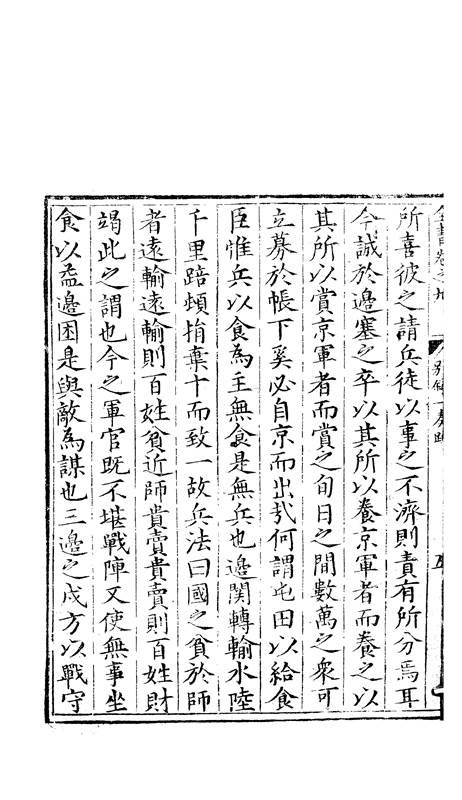 全書卷之九　別錄一　奏疏　五
所喜彼之請兵徒以事之不濟則責有所分焉耳
今誠於邊塞之卒以其所以養京軍者而養之以
其所以賞京軍者而賞之旬日之間數萬之衆可
立募於帳下奚必自京而出哉何謂屯田以給食
臣惟兵以食為主無食是無兵也邊関轉輸水陸
千里踣頓捐棄十而致一故兵法曰國之貧於師
者遠輸遠輸則百姓貧近師貴賣貴賣則百姓財
竭此之謂也今之軍官既不堪戰陣又使無事坐
食以益邊困是與敵為謀也三邊之戍方以戰守